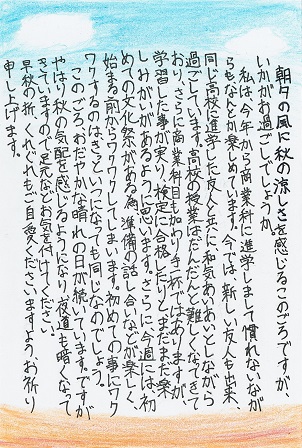 朝夕の風に秋の涼しさを感じるこのごろですが、
いかがお過ごしでしょうか。
私は今年から商業科に進学しまして慣れないなが
らもなんとか楽しめています。今では、新しい友人も出来、
同じ高校に進学した友人と共に和気あいあいとしながら
過ごしています。高校の授業はだんだんと難しくなってきて
おり、さらに商業科目も加わり手一杯ではありますが、
学習した事が実り、検定に合格したりとまだまだ楽
しみがいがあるように思います。さらに今週には、初
めての文化祭がある為、準備の話し合いなどが楽しく、
始まる前からワクワクしてしまいます。初めての事にワク
ワクするのはきっといつになっても同じなのでしょう。
このごろおだやかな晴れの日が続いています。ですが
やはり秋の気配を感じるようになり、夜道も暗くなって
きていますので足元などお気を付けてください。
早秋の折、くれぐれもご自愛くださいますよう、お祈り
申し上げます。